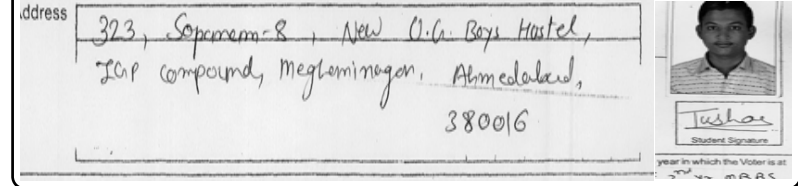 ddress
323, Sopamam-8, New U.G. Boys Hostel,
IGP compound, Meghaminagar, Ahmedabad,
380016
Tushar
Student Signature
year in which the Voter is at
2nd yr MBBS